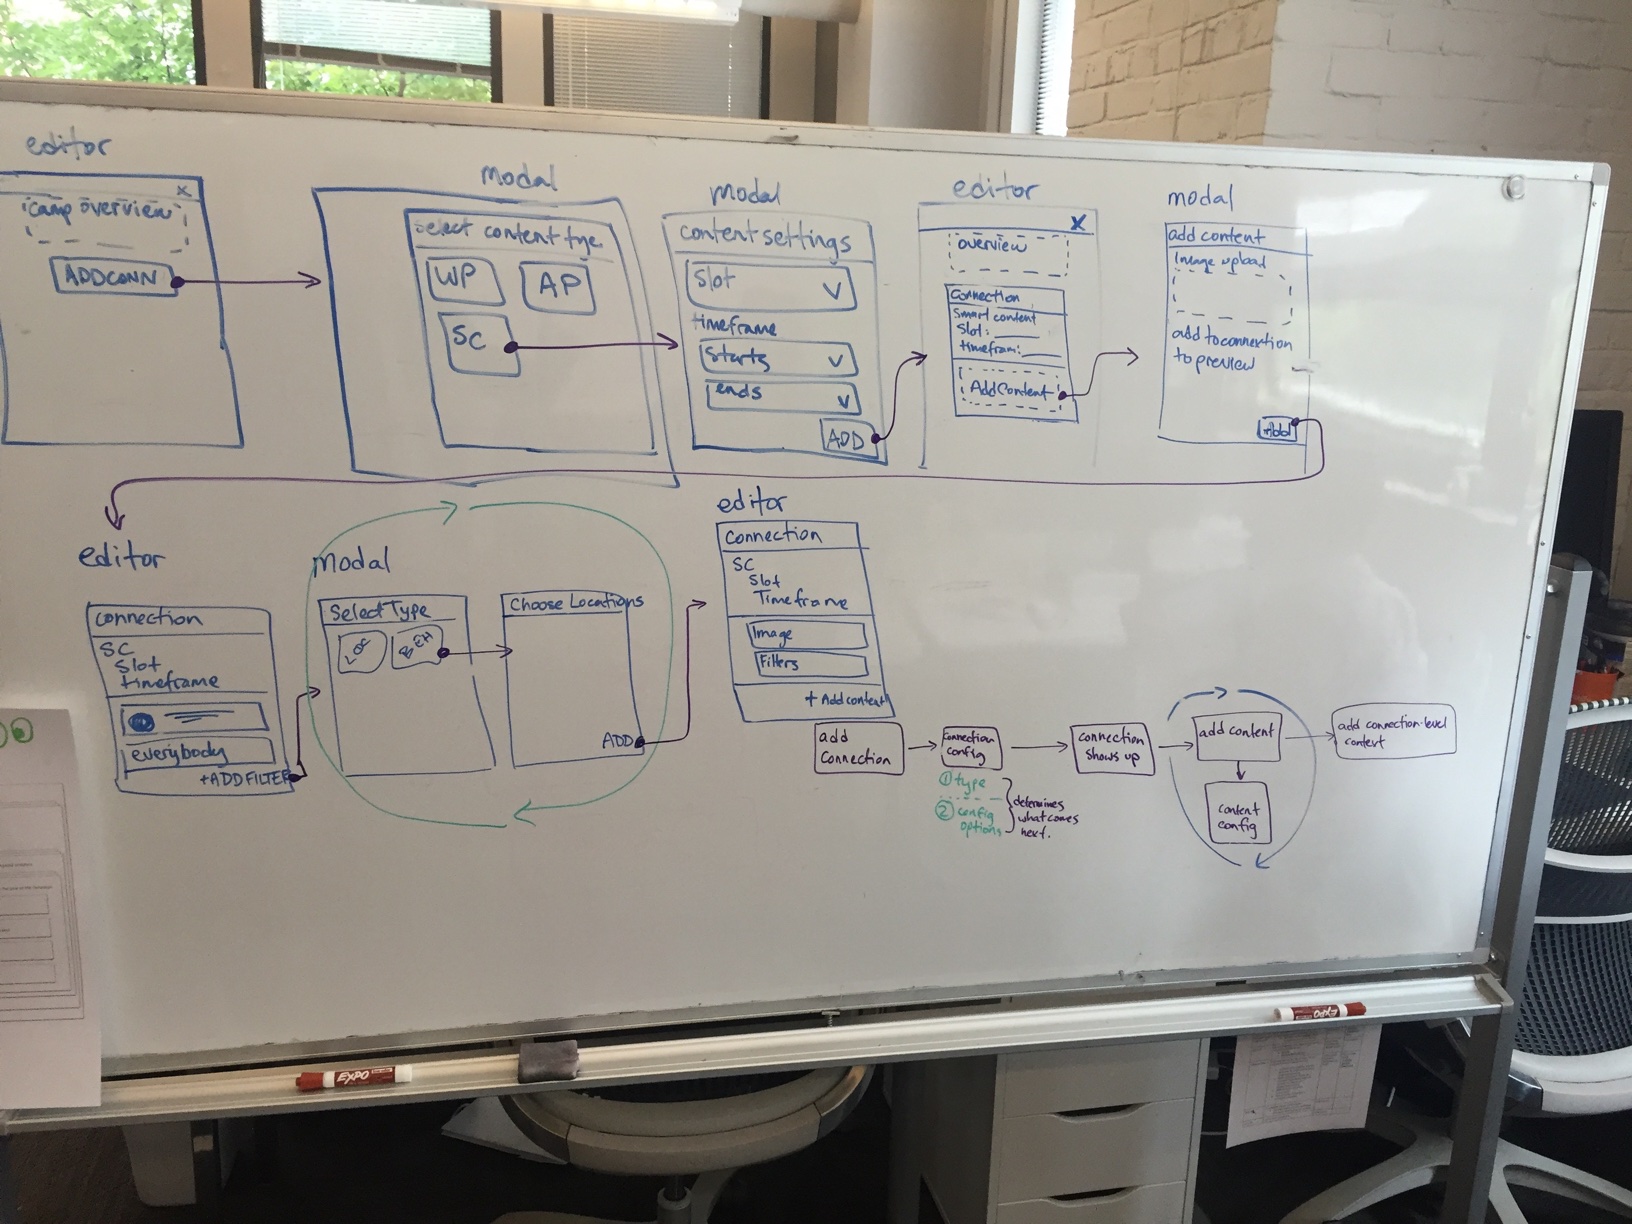 editor
camp overview
X
ADD CONN
modal
Select content type
WP
AP
SC
modal
content settings
Slot
timeframe
starts
ends
ADD
editor
X
overview
Connection
Smart content
Slot:
timefram:
Add Content
modal
add content
Image upload
add to connection
to preview
+Add
editor
connection
SC
Slot
timeframe
everybody
+ADD FILTER
modal
Select Type
LOC
BEH
Choose Locations
ADD
editor
Connection
SC
Slot
Timeframe
Image
Filters
+ Add context
add
Connection
Connection
config
① type
② config
options
determines
what comes
next.
connection
shows up
add content
content
config
add connection-level
context
EXPO
EXPO